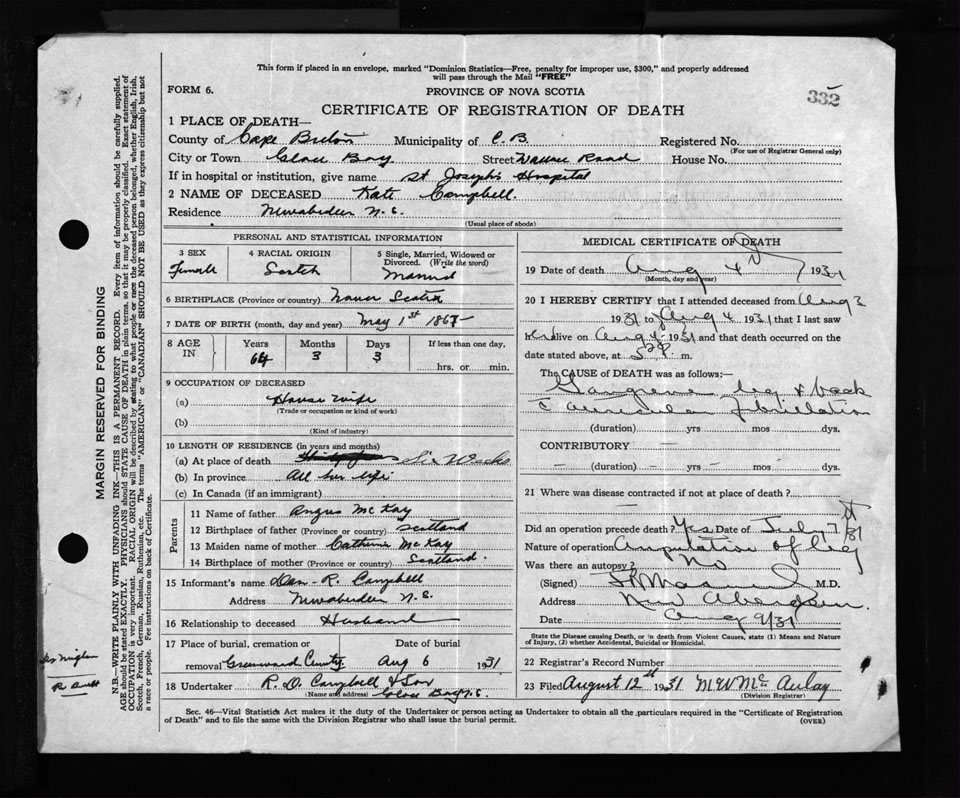 This form if placed in an envelope, marked "Dominion Statistics—Free, penalty for improper use, $300," and properly addressed
will pass through the Mail "FREE"
FORM 6.
PROVINCE OF NOVA SCOTIA
332
CERTIFICATE OF REGISTRATION OF DEATH
1 PLACE OF DEATH—
County of Cape Breton Municipality of C. B. Registered No.
(For use of Registrar General only)
City or Town Glace Bay Street Road House No.
If in hospital or institution, give name St Joseph's Hospital
2 NAME OF DECEASED Kate Campbell.
Residence Newaberdeen N.S.
(Usual place of abode)
PERSONAL AND STATISTICAL INFORMATION
3 SEX
Female
4 RACIAL ORIGIN
Scotch
5 Single, Married, Widowed or
Divorced. (Write the word)
Married
6 BIRTHPLACE (Province or country) Nova Scotia
7 DATE OF BIRTH (month, day and year) May 1st 1867
8 AGE IN
Years 64
Months 3
Days 3
If less than one day,
hrs. or min.
9 OCCUPATION OF DECEASED
(a) House wife
(Trade or occupation or kind of work)
(b)
(Kind of industry)
10 LENGTH OF RESIDENCE (in years and months)
(a) At place of death Six Weeks
(b) In province All her life
(c) In Canada (if an immigrant)
Parents
11 Name of father Angus McKay
12 Birthplace of father (Province or country) Scotland
13 Maiden name of mother Catherine McKay
14 Birthplace of mother (Province or country) Scotland.
15 Informant's name Dan. R. Campbell
Address Newaberdeen N.S.
16 Relationship to deceased Husband
17 Place of burial, cremation or
removal Greenwood
Date of burial
Aug 6 1931
18 Undertaker R. D. Campbell & Son
(Name and address) Glace Bay N.S.
MEDICAL CERTIFICATE OF DEATH
19 Date of death Aug 4 1931
(Month, day and year)
20 I HEREBY CERTIFY that I attended deceased from Aug 3
1931 to Aug 4 1931 that I last saw
her alive on Aug 4 1931 and that death occurred on the
date stated above, at m.
The CAUSE OF DEATH was as follows:—
Gangrene leg & back
c̄ auricular fibrillation
(duration) yrs mos dys.
CONTRIBUTORY
(duration) yrs mos dys.
21 Where was disease contracted if not at place of death?
Did an operation precede death? Yes Date of Jul 7th/31
Nature of operation Amputation of leg
Was there an autopsy? No
(Signed) M.D.
Address New Aberdeen.
Date Aug 9/31
State the Disease causing Death, or in death from Violent Causes, state (1) Means and Nature
of Injury, (2) whether Accidental, Suicidal or Homicidal.
22 Registrar's Record Number
23 Filed August 12th 1931 McAulay
(Division Registrar)
Sec. 46—Vital Statistics Act makes it the duty of the Undertaker or person acting as Undertaker to obtain all the particulars required in the "Certificate of Registration
of Death" and to file the same with the Division Registrar who shall issue the burial permit.
(OVER)
MARGIN RESERVED FOR BINDING
N.B.—WRITE PLAINLY WITH UNFADING INK—THIS IS A PERMANENT RECORD. Every item of information should be carefully supplied.
AGE should be stated EXACTLY. PHYSICIANS should STATE CAUSE OF DEATH in plain terms, so that it may be properly classified. Exact statement of
OCCUPATION is very important. RACIAL ORIGIN will be described by stating to what people or race the deceased person belonged, whether English, Irish,
Scotch, French, German, Russian, Ruthenian, etc. The terms "AMERICAN" or "CANADIAN" SHOULD NOT BE USED as they express citizenship but not
a race or people. Fee instructions on back of Certificate.